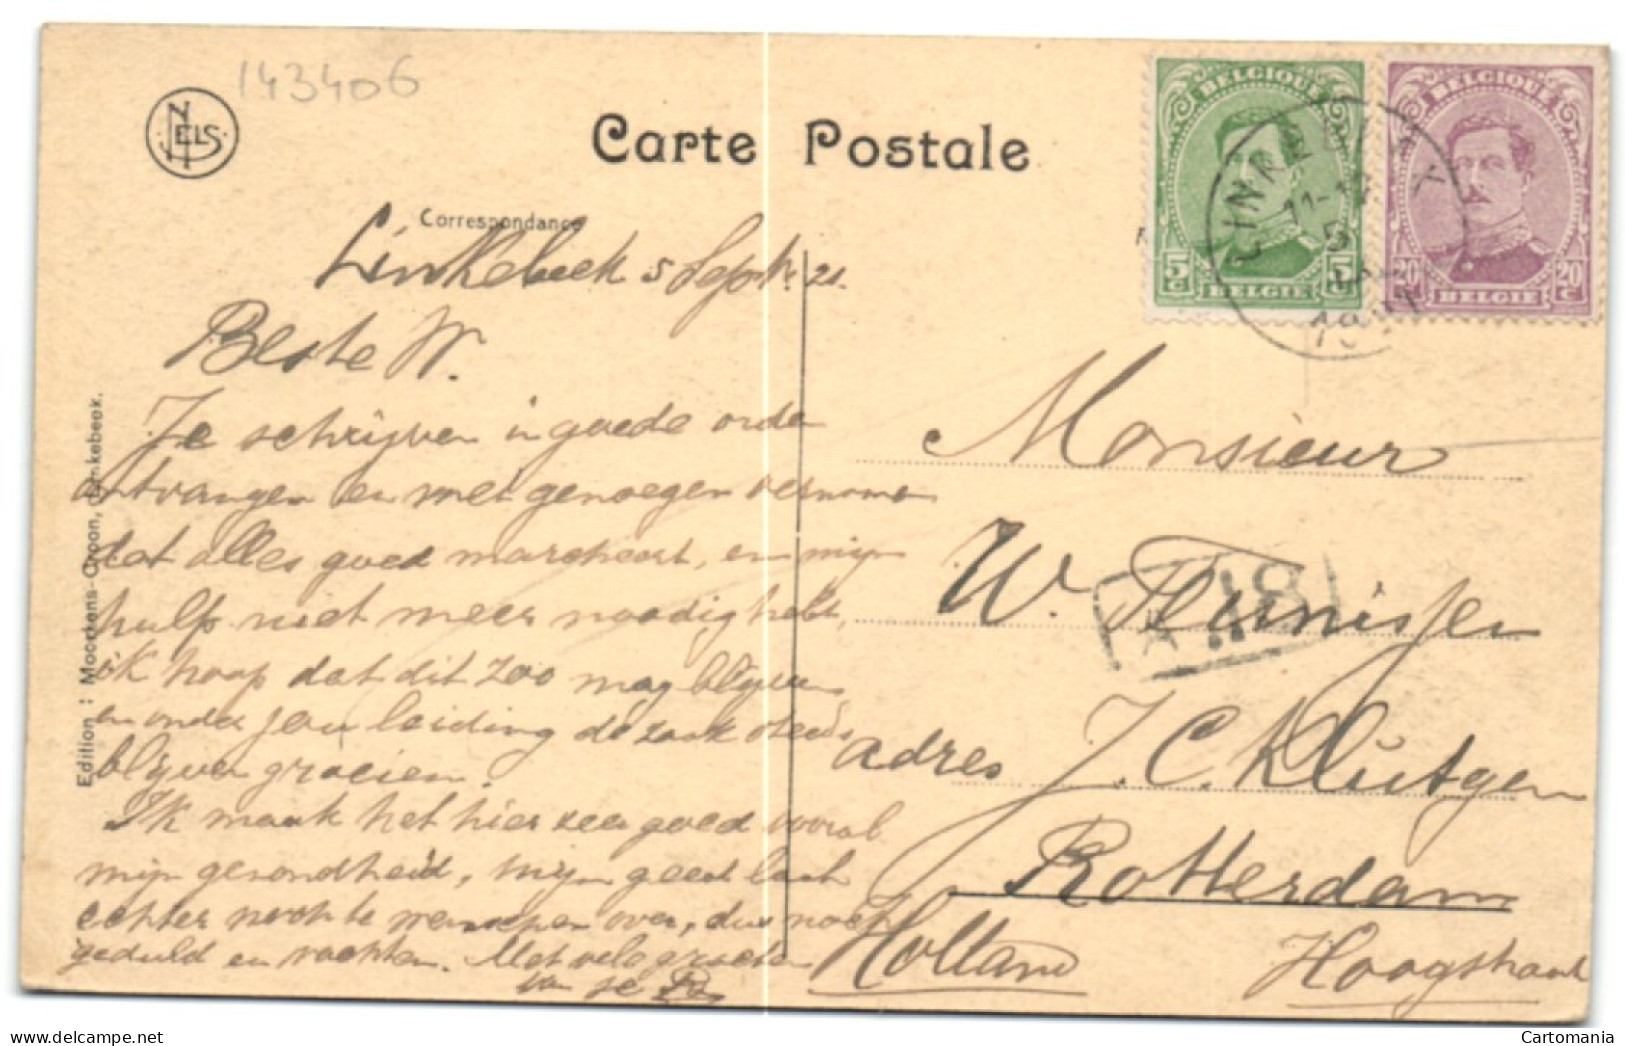 143406
NELS
Carte Postale
Correspondance
Linkebeek 5 Sept. 21.
Beste W.
Je schrijven in goede orde
ontvangen en met genoegen vernomen
dat alles goed marcheert, en mijn
hulp niet meer noodig hebt,
ik hoop dat dit zoo mag blijven
en onder jou leiding de zaak steeds
blijven groeien.
Ik maak het hier zeer goed vooral
mijn gezondheid, mijn geest laat
echter noch te wenschen over, dus noch
geduld en wachten. Met vele groeten
van je
Edition : Moorkens-Croon, Linkebeek.
BELGIQUE
5c 5c
BELGIE
BELGIQUE
20c 20c
BELGIE
LINKEBEEK
11-12
5
Monsieur
W. Teunissen
adres J. C. Klutgen
Rotterdam
Holland Hoogstraat
81
Cartomania
delcampe.net